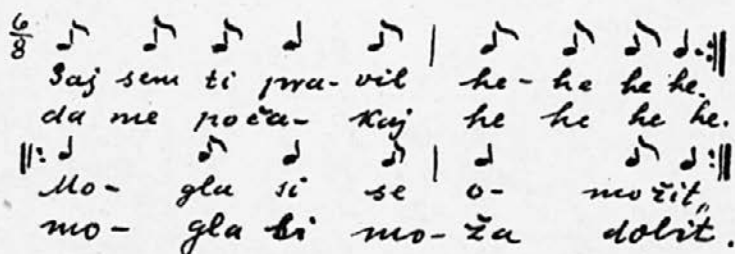 6/8
Saj sem ti pra-vil he-he he he.
da me poča-kaj he he he he.
Mo-gla si se o-možit„
mo-gla bi mo-ža dobit.